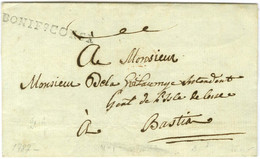 BONIF?CO
A Monsieur
Monsieur De la Intendant
Gñal de l'Isle de Corse
A Bastia